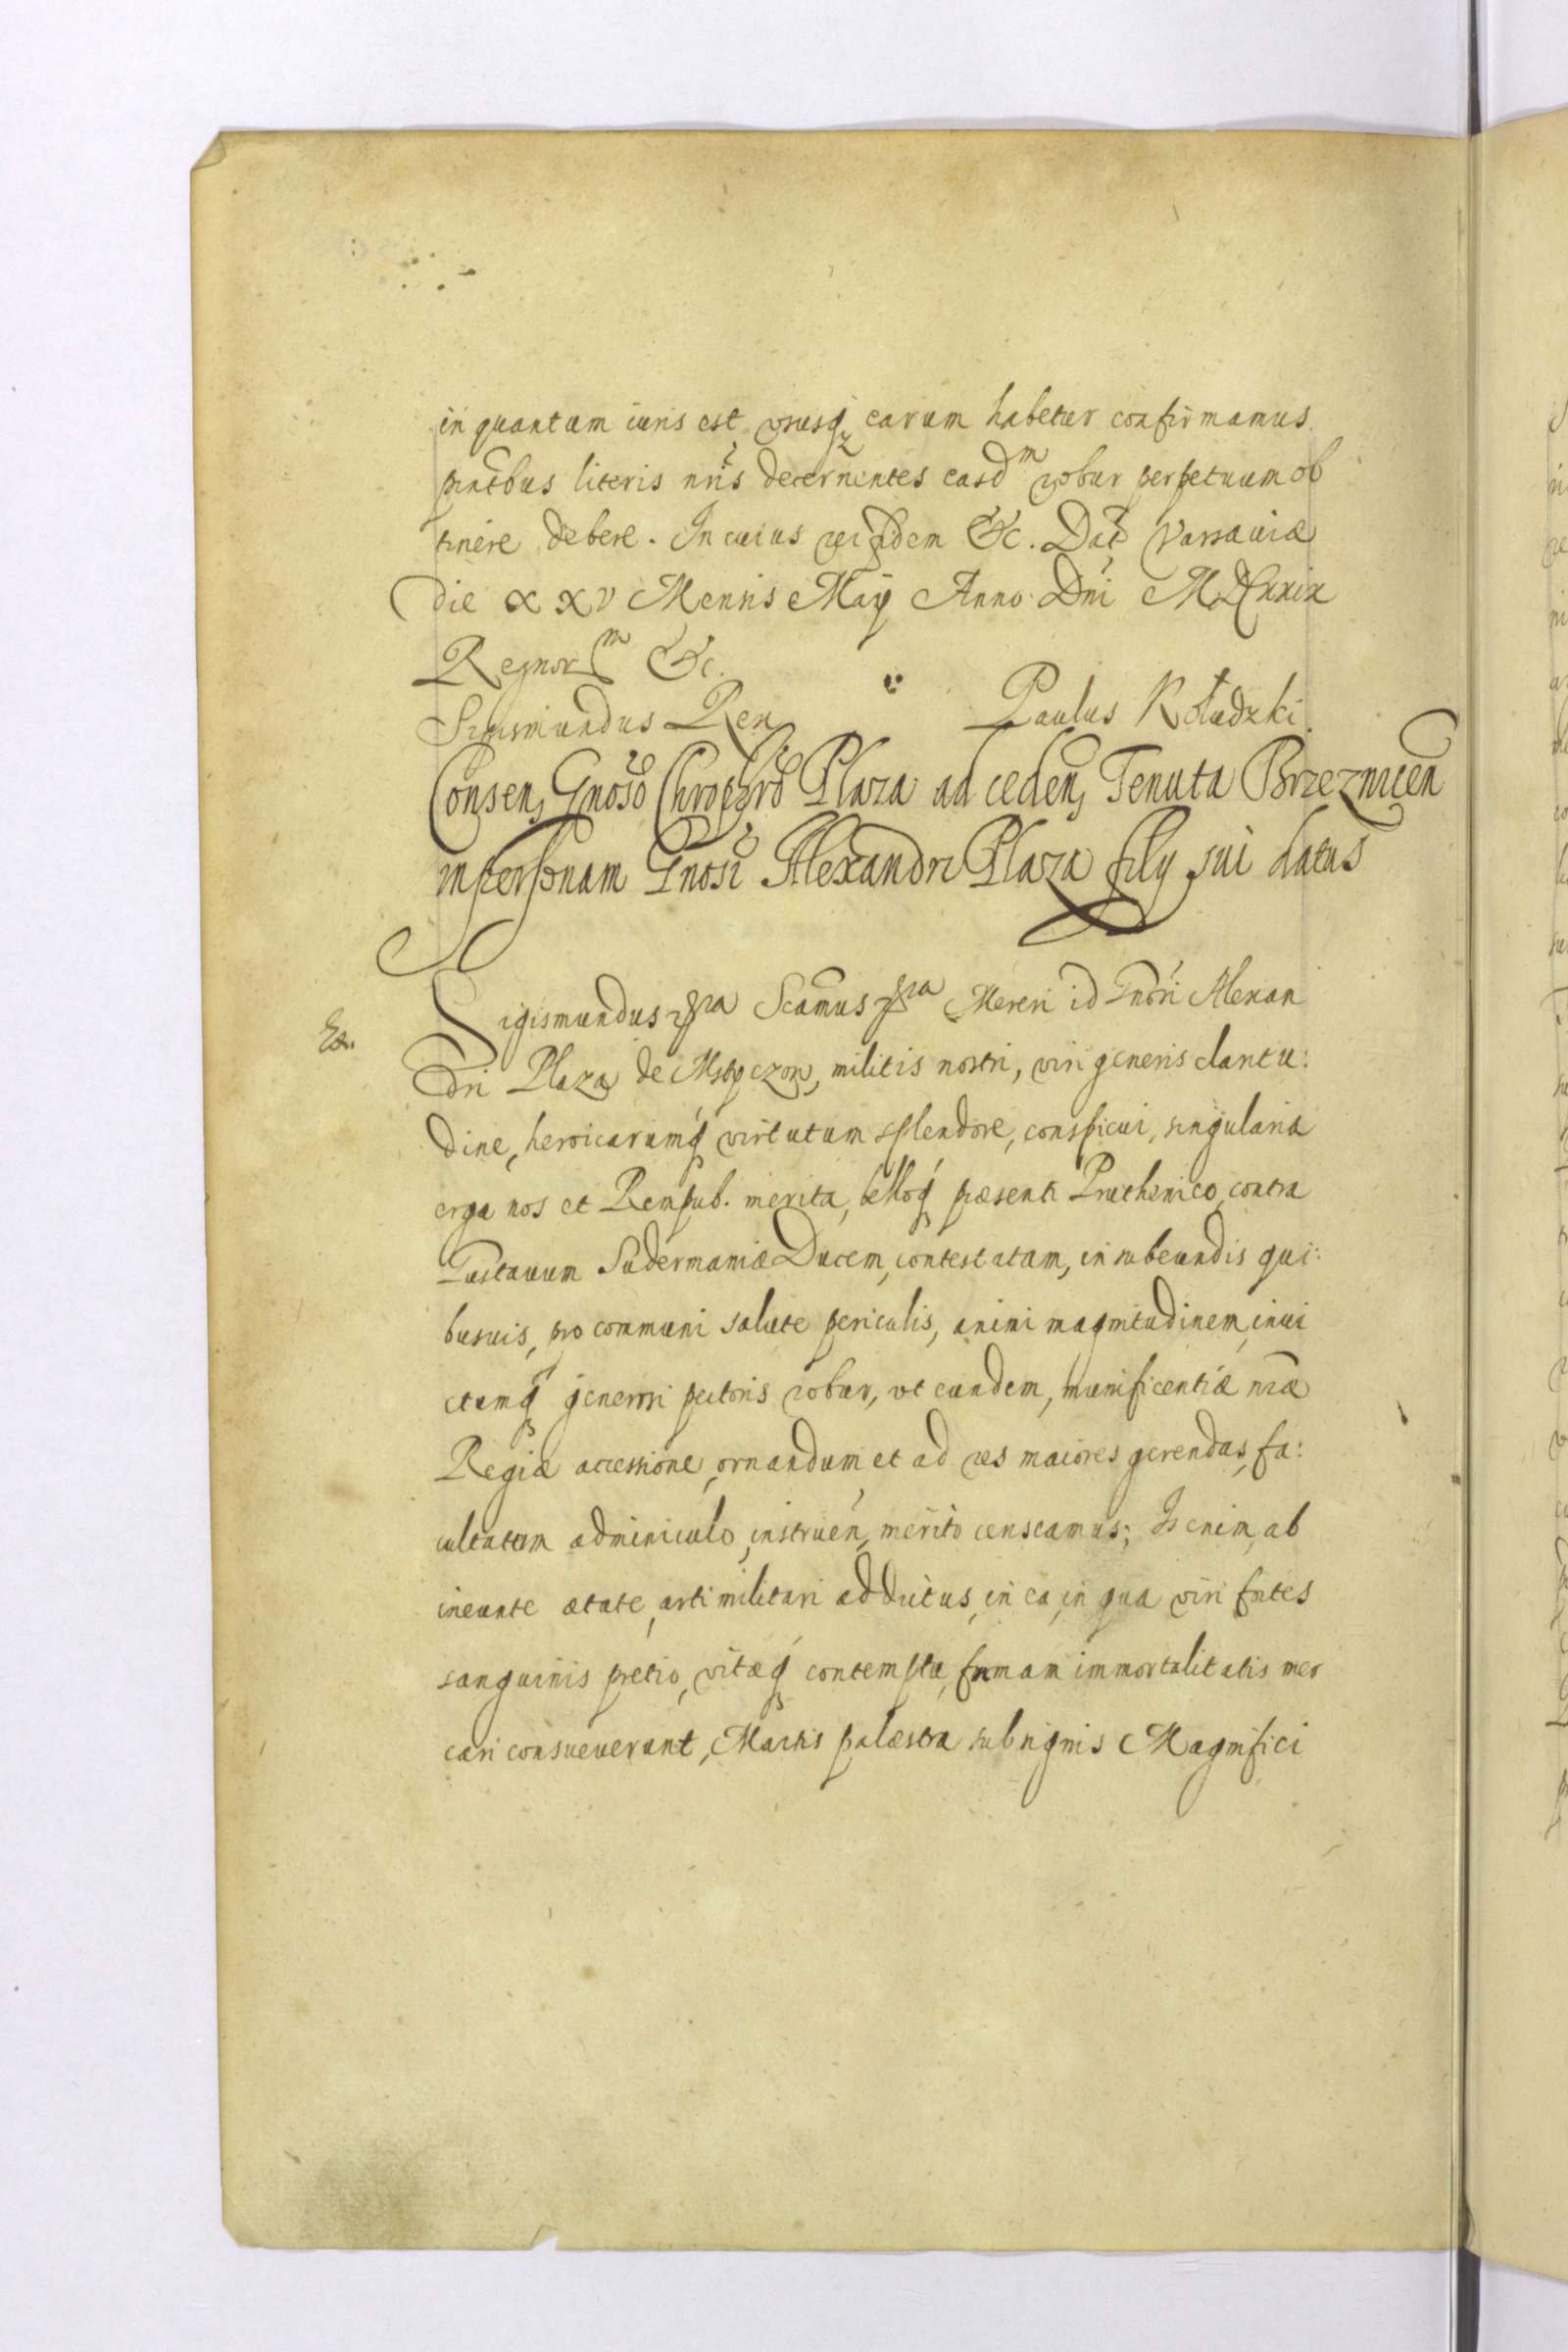 in quantum iuris est, ususq₃ earum habetur confirmamus
pñtibus literis nrĩs decernentes easdᵐ robur perpetuum ob
tinere debere. In cuius rei fidem &c. Dat Varsauiæ
die XXV Mensis Maÿ Anno Dni MDCXXIX
Regnorᵐ &c.
Sigismundus Rex Paulus Kołudzki
Consens Gnoso Chrophro Plaza ad cedend Tenuta Brzeznicen
in personam Gnosi Alexandri Plaza filÿ sui datus
Ex.
Sigismundus &ra Scamus &ra Mereri id Gnosi Alexan
dri Plaza de Mstyczow, militis nostri, viri generis clantu:
dine, heroicarumq virtutum splendore, conspicui, singularia
erga nos et Rempub. merita, belloq præsenti Pruthenico, contra
Gustauum Sudermaniæ Ducem, contestatam, in subeundis qui:
busuis, pro communi salute periculis, animi magnitudinem, inui
ctumq generosi pectoris robur, vt eundem, munificentiæ nræ
Regiæ accessione, ornandum, et ad res maiores gerendas, fa:
cultatum adminiculo, instruen, merito censeamus; Is enim, ab
ineunte ætate, arti militari addictus, in ea, in qua viri fortes
sanguinis pretio, vitæq contemptu, famam immortalitatis mer
cari consueuerunt, Martis palæstra sub signis Magnifici